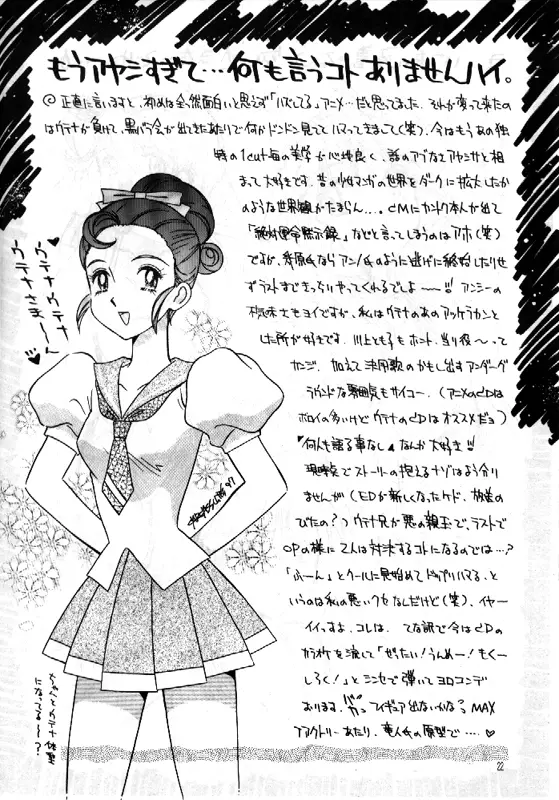 もうアヤシすぎて…何も言うコトありませんハイ。
◎正直に言いますと、初めは全然面白いと思えず「ハズしてる」アニメ…だと思ってました。それが変って来たの
はウテナが負けて、黒バラ会が出てきたあたりで何かドンドン見ててハマってきまして(笑)、今はもうあの独
特の1cut毎の美学が心地良く、話のアブなさアヤシサと相
まって大好きです。昔の少女マンガの世界をダークに拡大したか
のような世界観がたまらん…。CMにカントク本人が出て
「絶対運命黙示録」などと言ってしまうのはアホ(笑)
ですが、幾原氏ならアンノ氏のように逃げに終始したりせ
ずラストまできっちりやってくれるでしょ〜!!アンシーの
不気味さもヨイですが、私はウテナのあのアッケラカンと
した所が好きです。川上とも子もホント、当り役〜って
カンジ。加えて決闘歌のかもし出すアンダーグ
ラウンドな雰囲気もサイコー。(アニメのCDは
ボロイの多いけどウテナのCDはオススメだよ)
"何人も語る事なし"なんか大好き!!
現時点でストーリーの抱えるナゾはよう分り
ませんが(EDが新しくなったケド、放送の
びたの?)ウテナ兄が悪の親玉で、ラストで
OPの様に2人は対決するコトになるのでは…?
「ふーん」とクールに見始めてドップリハマる、と
いうのは私の悪いクセなんだけど(笑)、イヤー
イイっすよ、コレは。てな訳で今はCDの
カラオケを流して「ぜったい!うんめー!もくー
しろく!」とシンセで弾いてヨロコンデ
おります。バカ。フィギュア出ないかな?MAX
ファクトリーあたり、竜人氏の原型で……♥
ウテナウテナ
ウテナさま〜〜ん
97
22